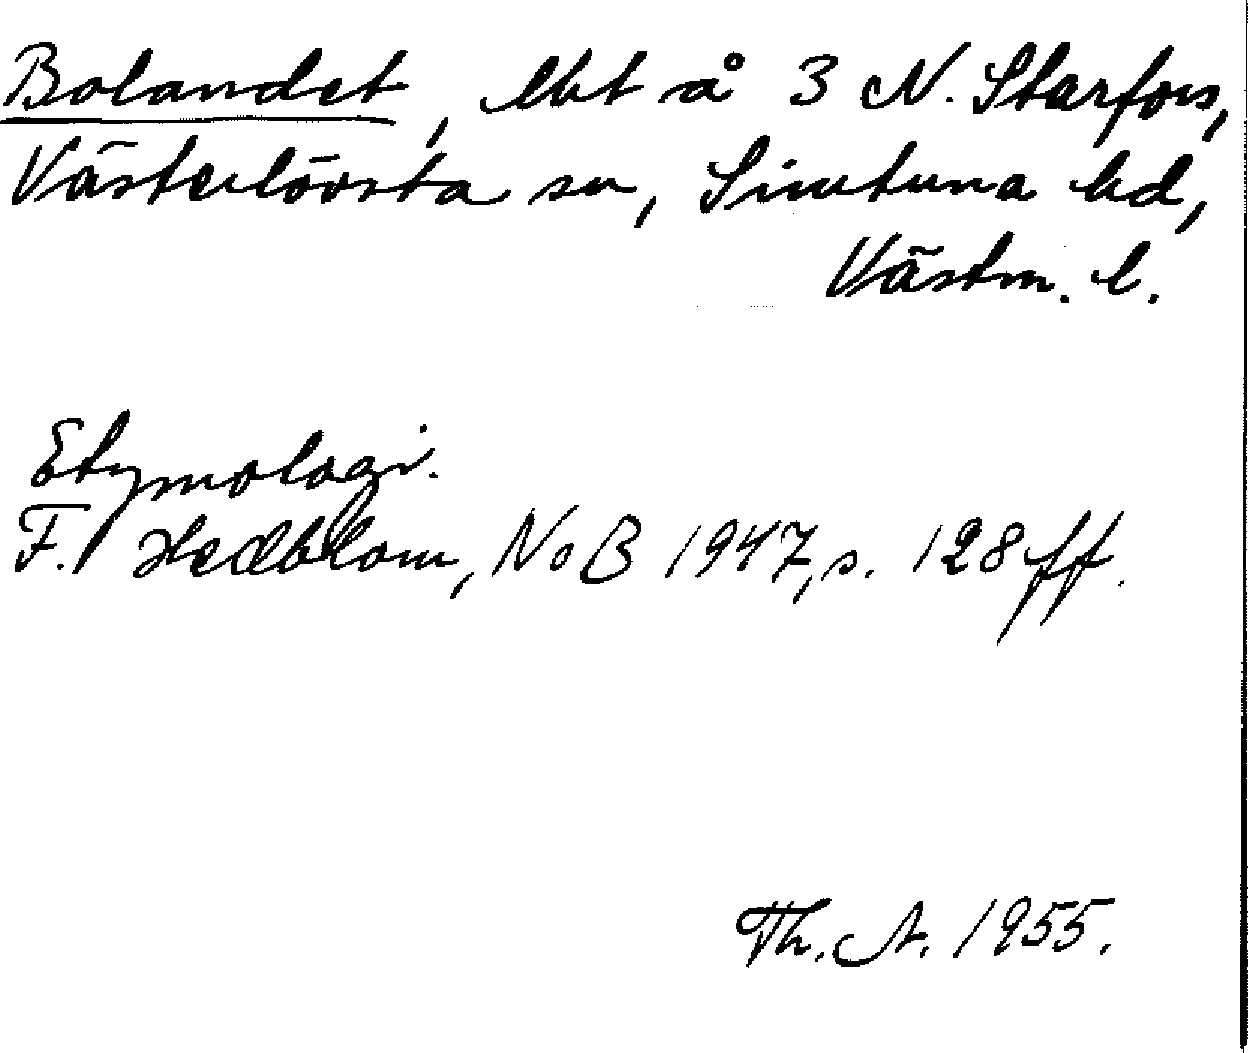 Bolandet, lht å 3 N. Starfors,
Västerlövsta sn, Simtuna hd,
Västm. l.
Etymologi.
F. Hedblom, NoB 1947, s. 128 ff.
Th. A. 1955.